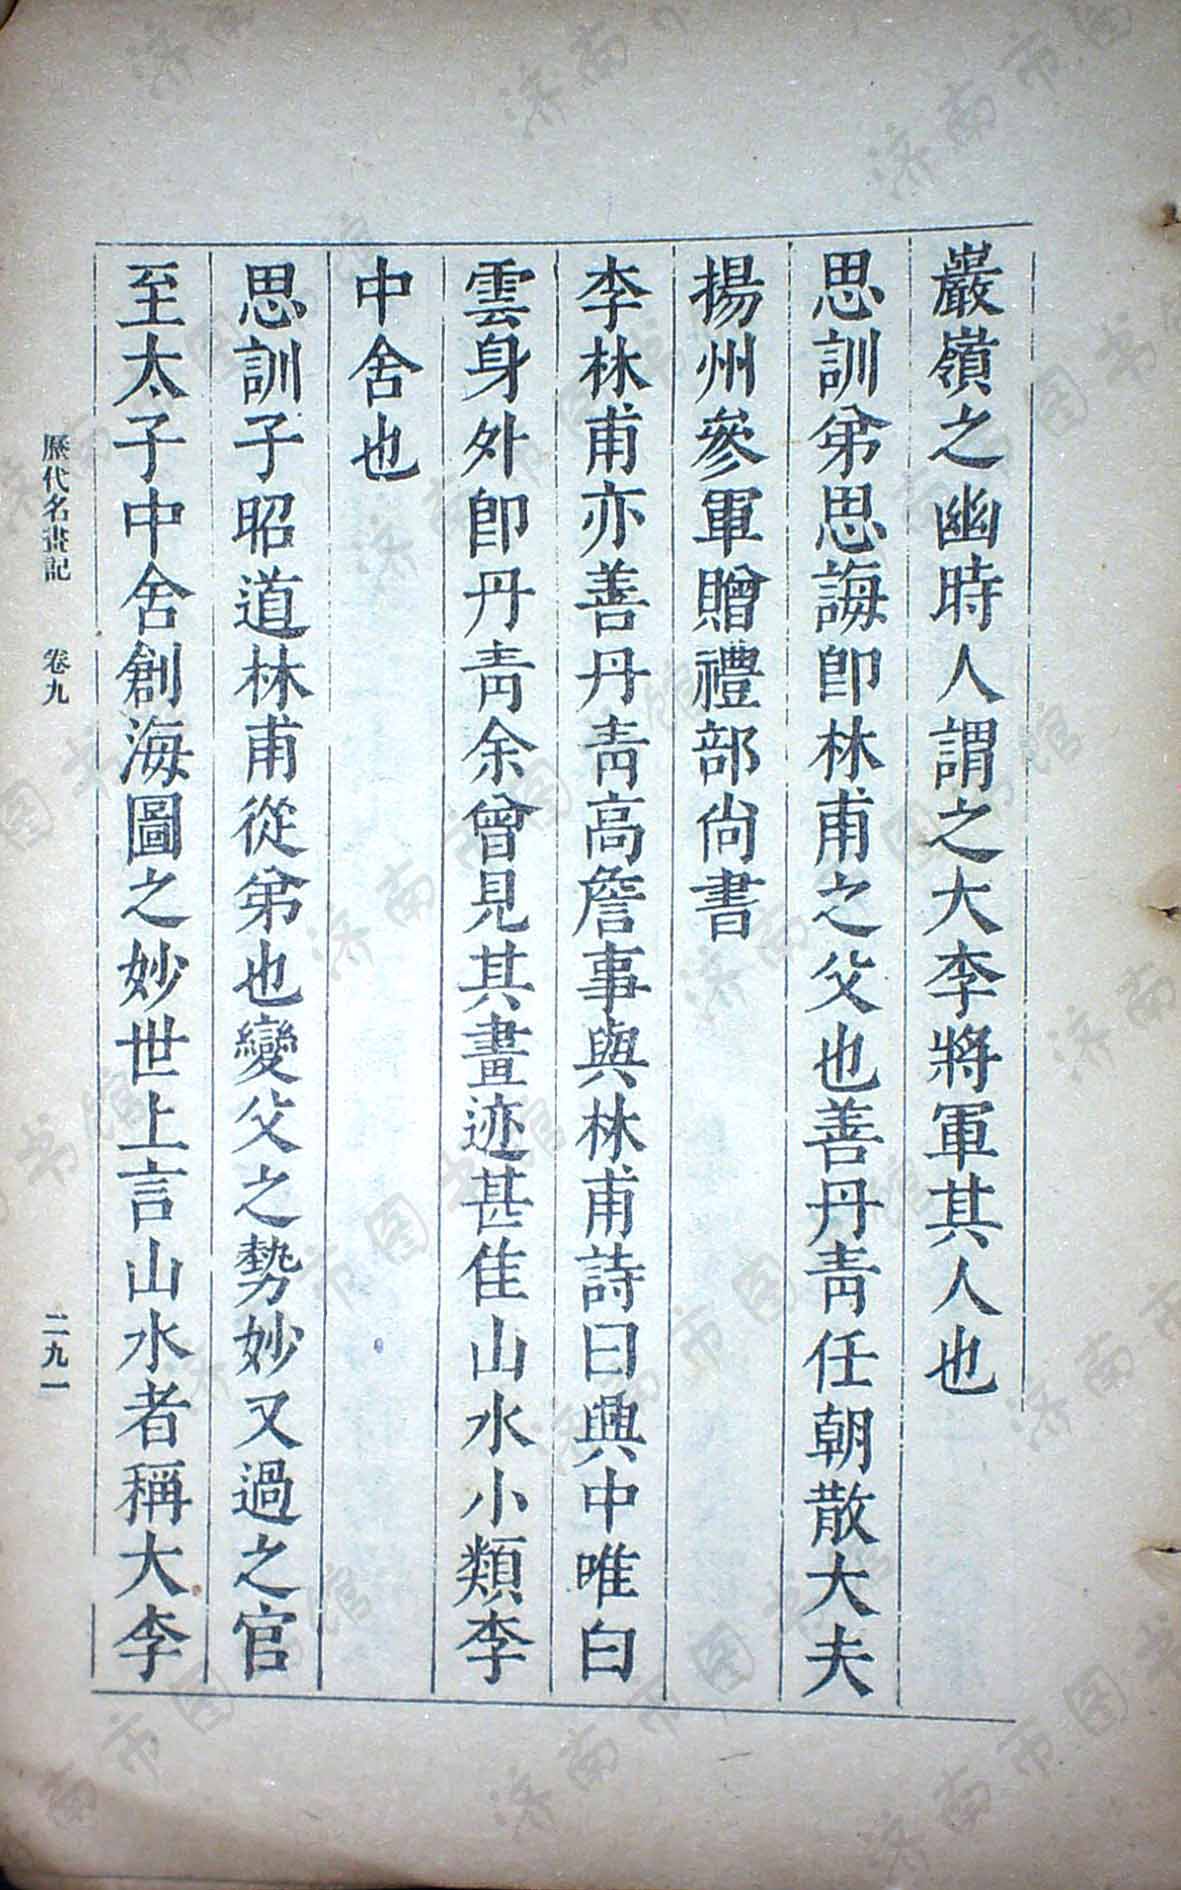 巖嶺之幽時人謂之大李將軍其人也
思訓弟思誨卽林甫之父也善丹靑任朝散大夫
揚州參軍贈禮部尙書
李林甫亦善丹靑高詹事與林甫詩曰興中唯白
雲身外卽丹靑余曾見其畫迹甚佳山水小類李
中舍也
思訓子昭道林甫從弟也變父之勢妙又過之官
至太子中舍創海圖之妙世上言山水者稱大李
歷代名畫記 卷九 二九一
济南市图书馆